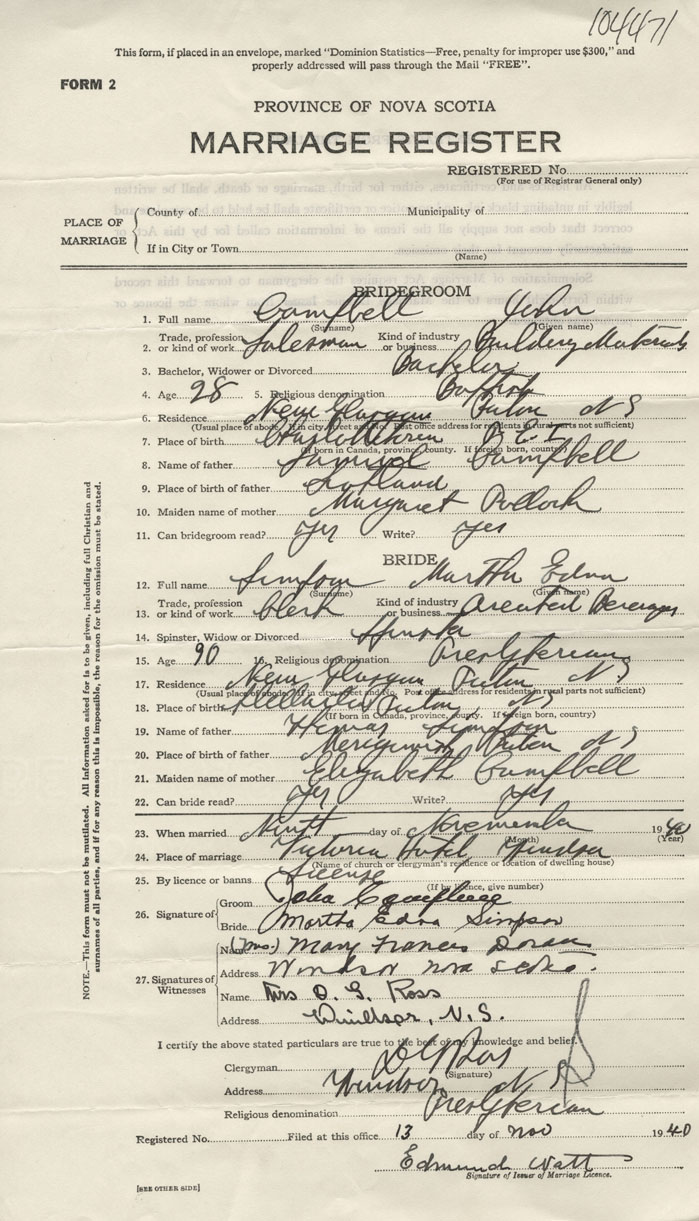 104471
This form, if placed in an envelope, marked "Dominion Statistics—Free, penalty for improper use $300," and
properly addressed will pass through the Mail "FREE".
FORM 2
PROVINCE OF NOVA SCOTIA
MARRIAGE REGISTER
REGISTERED No.
(For use of Registrar General only)
PLACE OF MARRIAGE
County of Municipality of
If in City or Town
(Name)
BRIDEGROOM
1. Full name Campbell John
(Surname) (Given name)
2. Trade, profession or kind of work Salesman Kind of industry or business Building Materials
3. Bachelor, Widower or Divorced Bachelor
4. Age 28 5. Religious denomination Baptist
6. Residence New Glasgow Pictou N S
(Usual place of abode. If in city, street and No. Post office address for residents in rural parts not sufficient)
7. Place of birth Charlottetown P. E. I.
(If born in Canada, province, county. If foreign born, country)
8. Name of father Samuel Campbell
9. Place of birth of father Scotland
10. Maiden name of mother Margaret Pollock
11. Can bridegroom read? Yes Write? Yes
BRIDE
12. Full name Simpson Martha Edna
(Surname) (Given name)
13. Trade, profession or kind of work Clerk Kind of industry or business Aerated Beverages
14. Spinster, Widow or Divorced Spinster
15. Age 16. Religious denomination Presbyterian
17. Residence New Glasgow Pictou N S
(Usual place of abode. If in city, street and No. Post office address for residents in rural parts not sufficient)
18. Place of birth Stellarton Pictou N S
(If born in Canada, province, county. If foreign born, country)
19. Name of father Simpson
20. Place of birth of father Merigomish Pictou N S
21. Maiden name of mother Elizabeth Campbell
22. Can bride read? Yes Write? Yes
23. When married Ninth day of November 1940
(Month) (Year)
24. Place of marriage Victoria Hotel, Windsor
(Name of church or clergyman's residence or location of dwelling house)
25. By licence or banns License
(If by licence, give number)
26. Signature of
Groom John
Bride Martha Edna Simpson
27. Signatures of Witnesses
Name (Mrs.) Mary Frances Doran
Address Windsor Nova Scotia.
Name Mrs D. G. Ross
Address Windsor, N.S.
I certify the above stated particulars are true to the best of my knowledge and belief.
Clergyman D G Ross
(Signature)
Address Windsor N S
Religious denomination Presbyterian
Registered No. Filed at this office 13 day of Nov 1940
Edmund Watt
Signature of Issuer of Marriage Licence.
[SEE OTHER SIDE]
NOTE.—This form must not be mutilated. All information asked for is to be given, including full Christian and
surnames of all parties, and if for any reason this is impossible, the reason for the omission must be stated.